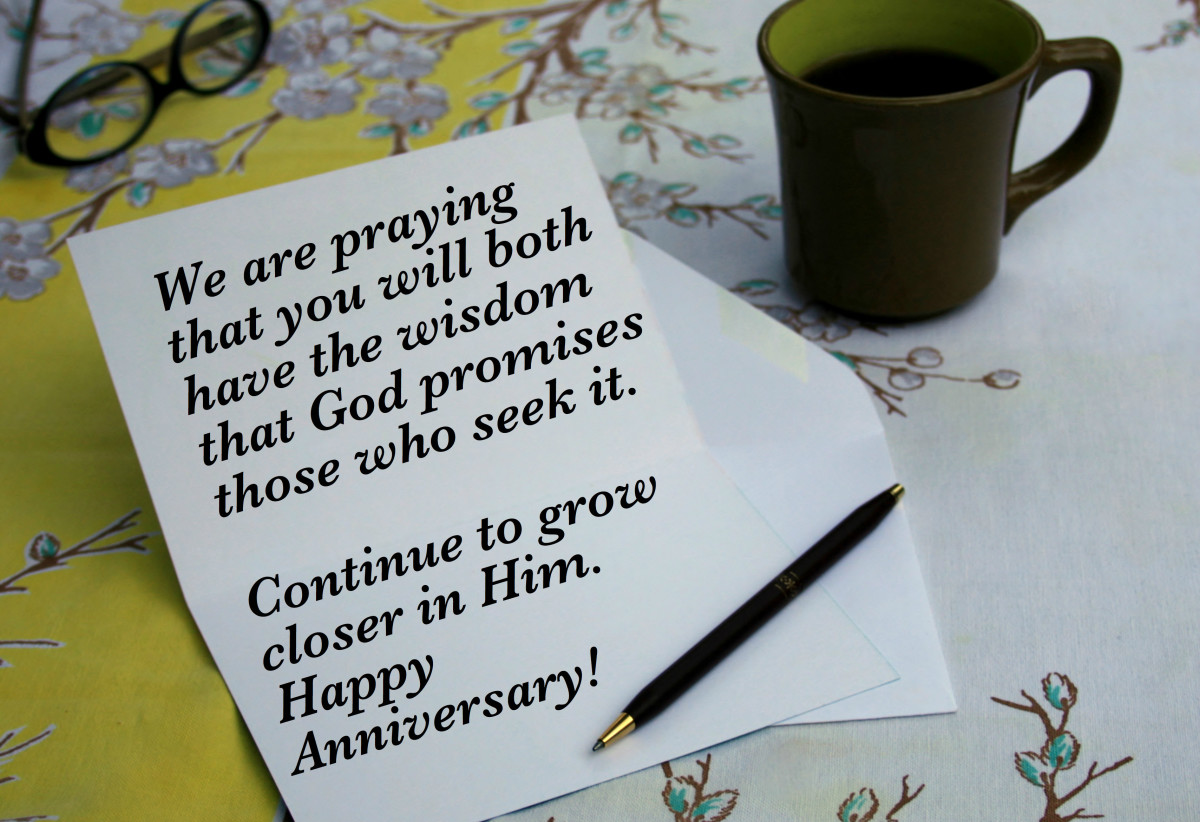 We are praying
that you will both
have the wisdom
that God promises
those who seek it.
Continue to grow
closer in Him.
Happy
Anniversary!